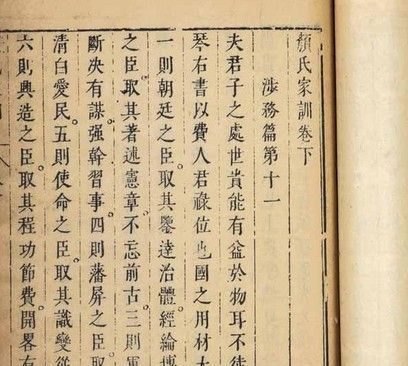 顏氏家訓卷下
涉務篇第十一
夫君子之處世貴能有益於物耳不徒
琴右書以費人君祿位也國之用材大
一則朝廷之臣。取其鑒達治體。經綸博
之臣。取其著述憲章不忘前古。三則軍
斷决有謀。强幹習事。四則藩屏之臣取
清白愛民。五則使命之臣。取其識變從
六則興造之臣。取其程功節費。開畧有